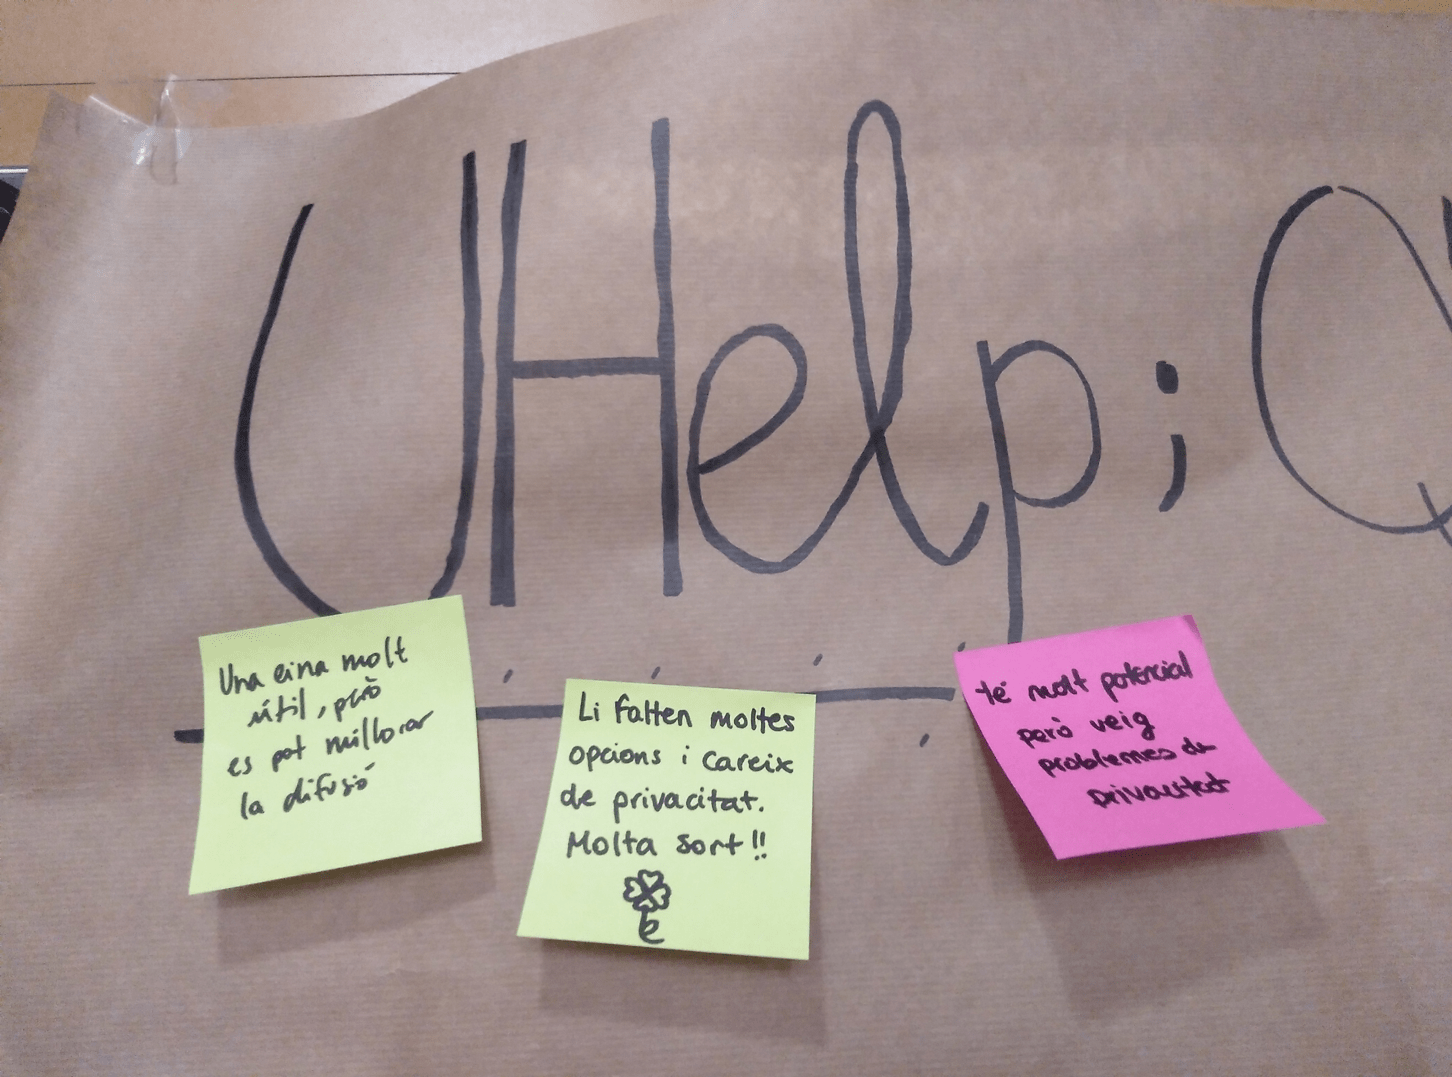 UHelp; Q
Una eina molt
útil, però
es pot millorar
la difusió
Li falten moltes
opcions i careix
de privacitat.
Molta sort!!
té molt potencial
però veig
problemes de
privacitat